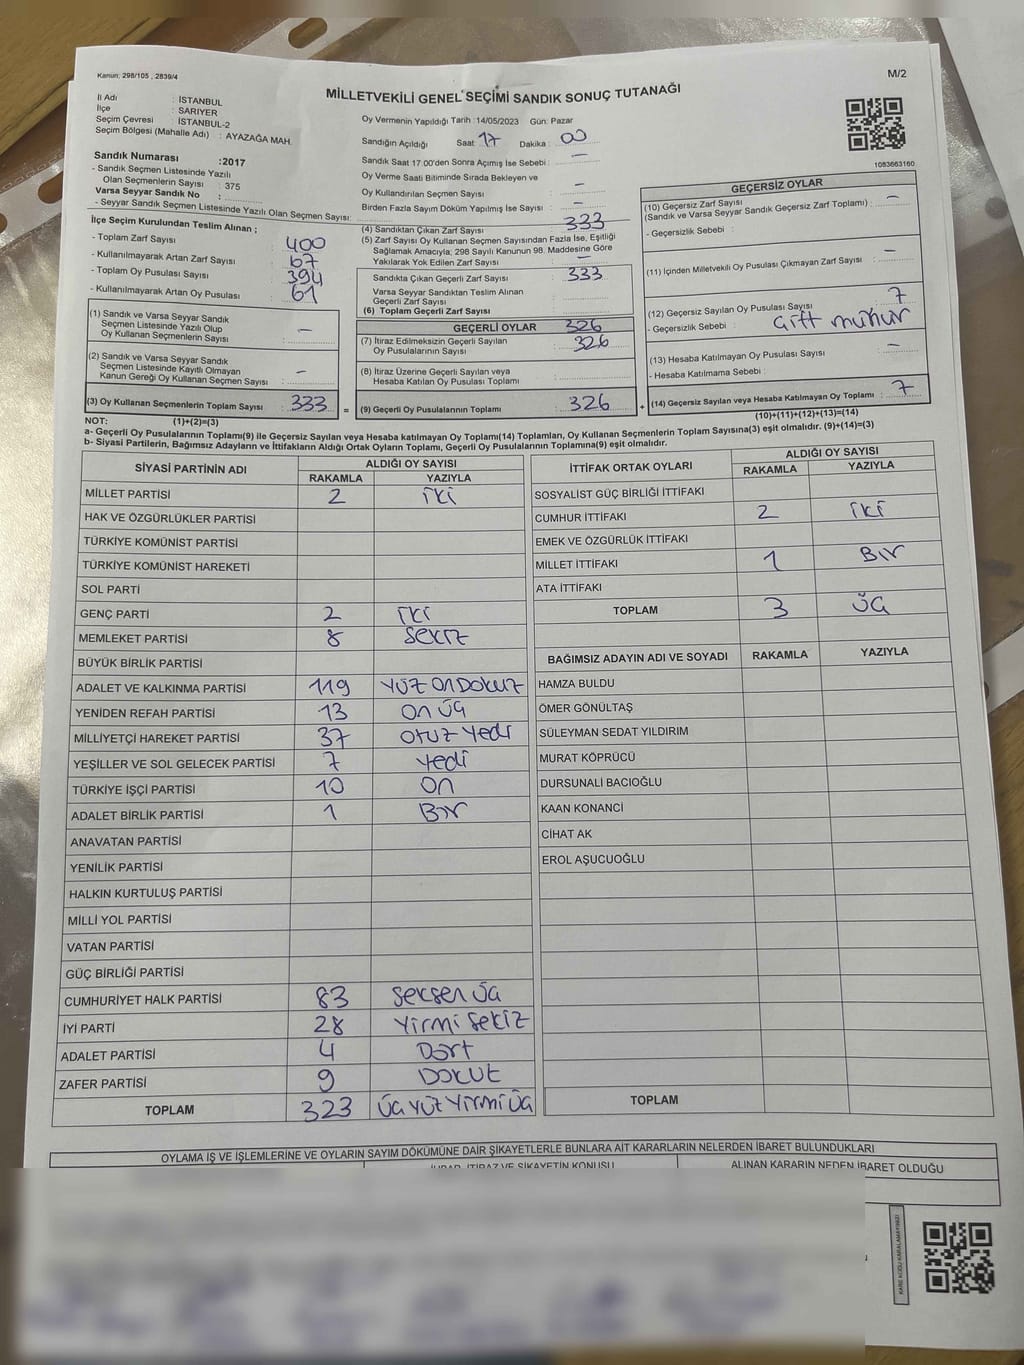 Kanun: 298/105 , 2839/4
M/2
MİLLETVEKİLİ GENEL SEÇİMİ SANDIK SONUÇ TUTANAĞI
İl Adı : İSTANBUL
İlçe : SARIYER
Seçim Çevresi : İSTANBUL-2
Seçim Bölgesi (Mahalle Adı) : AYAZAĞA MAH.
Sandık Numarası :2017
- Sandık Seçmen Listesinde Yazılı
Olan Seçmenlerin Sayısı : 375
Varsa Seyyar Sandık No :
- Seyyar Sandık Seçmen Listesinde Yazılı Olan Seçmen Sayısı:
Oy Vermenin Yapıldığı Tarih :14/05/2023 Gün: Pazar
Sandığın Açıldığı Saat 17 Dakika : 00
Sandık Saat 17.00'den Sonra Açımış İse Sebebi : —
Oy Verme Saati Bitiminde Sırada Bekleyen ve
Oy Kullandırılan Seçmen Sayısı : —
Birden Fazla Sayım Döküm Yapılmış İse Sayısı : —
1083663160
İlçe Seçim Kurulundan Teslim Alınan ;
- Toplam Zarf Sayısı : 400
- Kullanılmayarak Artan Zarf Sayısı : 67
- Toplam Oy Pusulası Sayısı : 394
- Kullanılmayarak Artan Oy Pusulası : 61
(1) Sandık ve Varsa Seyyar Sandık
Seçmen Listesinde Yazılı Olup
Oy Kullanan Seçmenlerin Sayısı : —
(2) Sandık ve Varsa Seyyar Sandık
Seçmen Listesinde Kayıtlı Olmayan
Kanun Gereği Oy Kullanan Seçmen Sayısı : —
(3) Oy Kullanan Seçmenlerin Toplam Sayısı : 333 =
(4) Sandıktan Çıkan Zarf Sayısı : 333
(5) Zarf Sayısı Oy Kullanan Seçmen Sayısından Fazla İse, Eşitliği
Sağlamak Amacıyla; 298 Sayılı Kanunun 98. Maddesine Göre
Yakılarak Yok Edilen Zarf Sayısı :
Sandıkta Çıkan Geçerli Zarf Sayısı : 333
Varsa Seyyar Sandıktan Teslim Alınan
Geçerli Zarf Sayısı :
(6) Toplam Geçerli Zarf Sayısı :
GEÇERLİ OYLAR 326
(7) İtiraz Edilmeksizin Geçerli Sayılan
Oy Pusulalarının Sayısı : 326
(8) İtiraz Üzerine Geçerli Sayılan veya
Hesaba Katılan Oy Pusulası Toplamı :
(9) Geçerli Oy Pusulalarının Toplamı : 326 +
GEÇERSİZ OYLAR
(10) Geçersiz Zarf Sayısı : —
(Sandık ve Varsa Seyyar Sandık Geçersiz Zarf Toplamı)
- Geçersizlik Sebebi :
(11) İçinden Milletvekili Oy Pusulası Çıkmayan Zarf Sayısı : —
(12) Geçersiz Sayılan Oy Pusulası Sayısı : 7
- Geçersizlik Sebebi : Çift mühür
(13) Hesaba Katılmayan Oy Pusulası Sayısı : —
- Hesaba Katılmama Sebebi :
(14) Geçersiz Sayılan veya Hesaba Katılmayan Oy Toplamı : 7
NOT: (1)+(2)=(3) (10)+(11)+(12)+(13)=(14)
a- Geçerli Oy Pusulalarının Toplamı(9) ile Geçersiz Sayılan veya Hesaba katılmayan Oy Toplamı(14) Toplamları, Oy Kullanan Seçmenlerin Toplam Sayısına(3) eşit olmalıdır. (9)+(14)=(3)
b- Siyasi Partilerin, Bağımsız Adayların ve İttifakların Aldığı Ortak Oyların Toplamı, Geçerli Oy Pusulalarının Toplamına(9) eşit olmalıdır.
SİYASİ PARTİNİN ADI ALDIĞI OY SAYISI
RAKAMLA YAZIYLA
MİLLET PARTİSİ 2 iki
HAK VE ÖZGÜRLÜKLER PARTİSİ
TÜRKİYE KOMÜNİST PARTİSİ
TÜRKİYE KOMÜNİST HAREKETİ
SOL PARTİ
GENÇ PARTİ 2 iki
MEMLEKET PARTİSİ 8 sekiz
BÜYÜK BİRLİK PARTİSİ
ADALET VE KALKINMA PARTİSİ 119 yüz on Dokuz
YENİDEN REFAH PARTİSİ 13 on üç
MİLLİYETÇİ HAREKET PARTİSİ 37 otuz yedi
YEŞİLLER VE SOL GELECEK PARTİSİ 7 yedi
TÜRKİYE İŞÇİ PARTİSİ 10 on
ADALET BİRLİK PARTİSİ 1 Bir
ANAVATAN PARTİSİ
YENİLİK PARTİSİ
HALKIN KURTULUŞ PARTİSİ
MİLLİ YOL PARTİSİ
VATAN PARTİSİ
GÜÇ BİRLİĞİ PARTİSİ
CUMHURİYET HALK PARTİSİ 83 seksen üç
İYİ PARTİ 28 yirmi sekiz
ADALET PARTİSİ 4 Dört
ZAFER PARTİSİ 9 Dokuz
TOPLAM 323 üç yüz yirmi üç
İTTİFAK ORTAK OYLARI ALDIĞI OY SAYISI
RAKAMLA YAZIYLA
SOSYALİST GÜÇ BİRLİĞİ İTTİFAKI
CUMHUR İTTİFAKI 2 iki
EMEK VE ÖZGÜRLÜK İTTİFAKI
MİLLET İTTİFAKI 1 Bir
ATA İTTİFAKI
TOPLAM 3 üç
BAĞIMSIZ ADAYIN ADI VE SOYADI RAKAMLA YAZIYLA
HAMZA BULDU
ÖMER GÖNÜLTAŞ
SÜLEYMAN SEDAT YILDIRIM
MURAT KÖPRÜCÜ
DURSUNALİ BACIOĞLU
KAAN KONANCİ
CİHAT AK
EROL AŞUCUOĞLU
TOPLAM
OYLAMA İŞ VE İŞLEMLERİNE VE OYLARIN SAYIM DÖKÜMÜNE DAİR ŞİKAYETLERLE BUNLARA AİT KARARLARIN NELERDEN İBARET BULUNDUKLARI
İHBAR, İTİRAZ VE ŞİKAYETİN KONUSU ALINAN KARARIN NEDEN İBARET OLDUĞU
KARE KODU KARALAMAYINIZ!